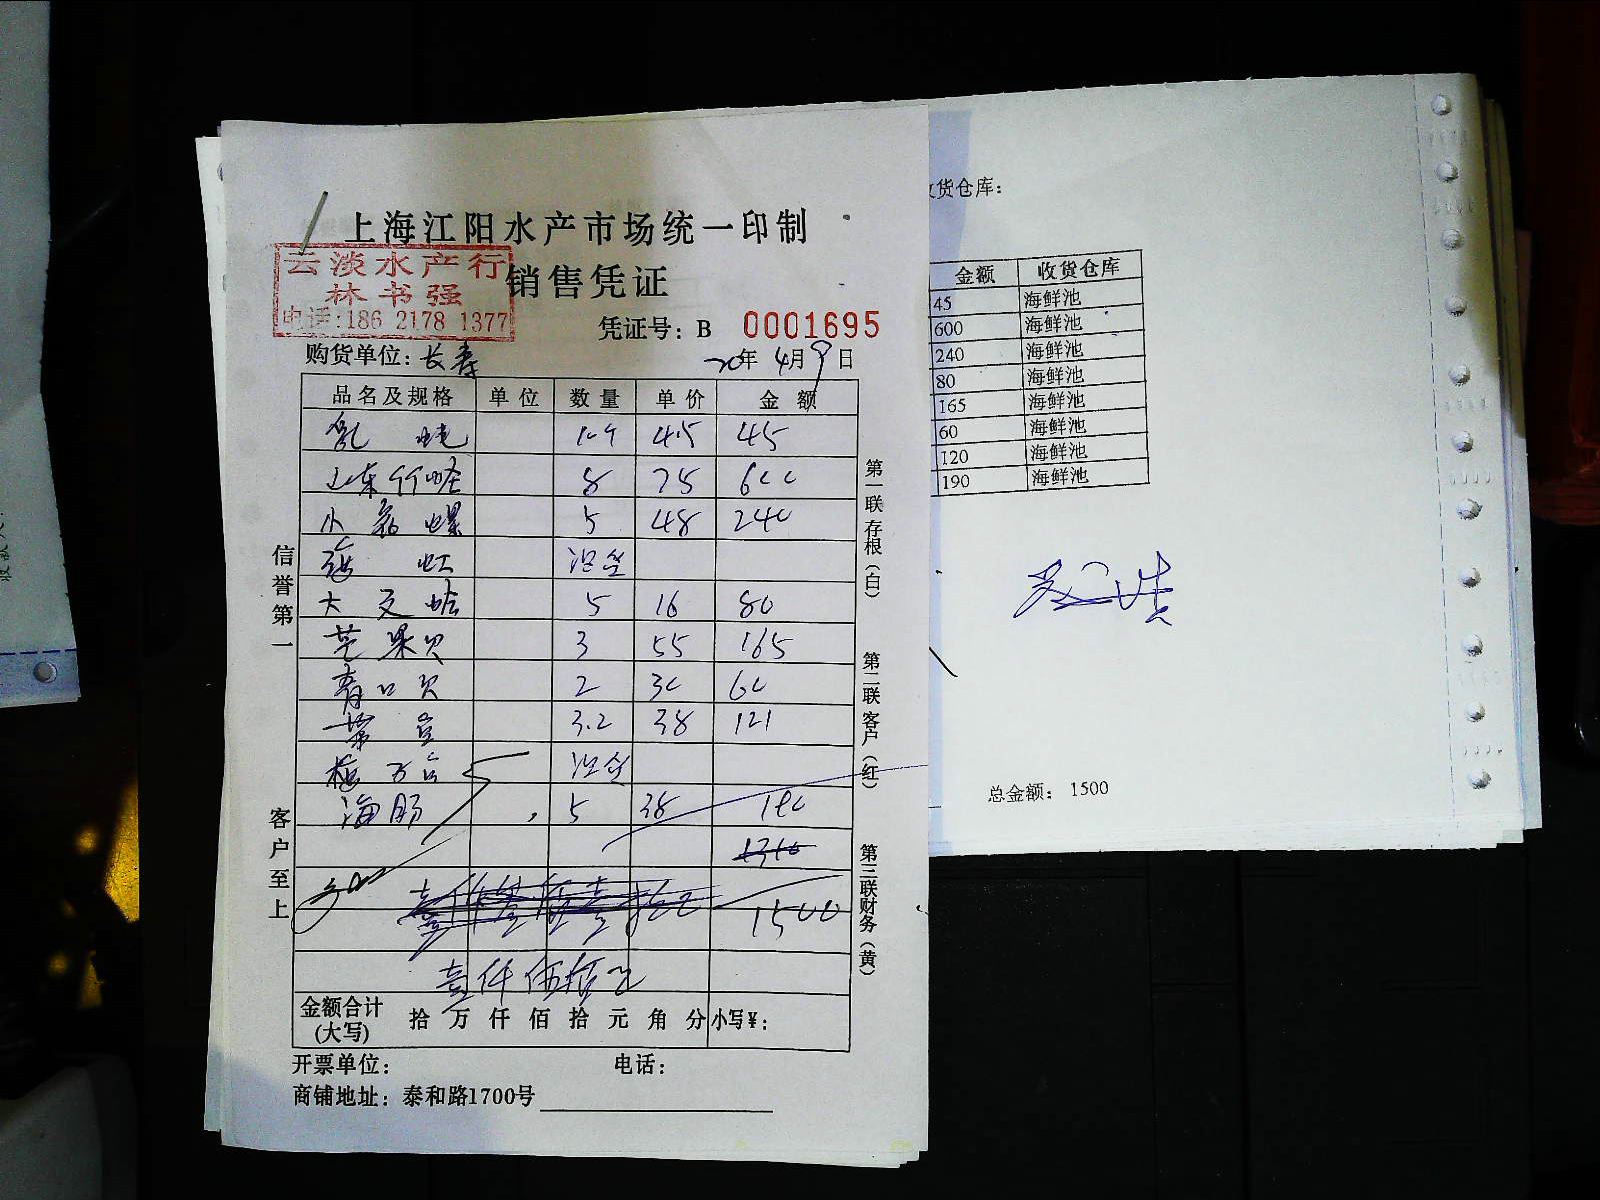 上海江阳水产市场统一印制
云淡水产行
林书强
电话:186 2178 1377
销售凭证
凭证号: B 0001695
购货单位: 长寿 20年 4月9日
品名及规格 单位 数量 单价 金额
45 45
山东 8 75 600
小 螺 5 48 240
大 蛤 5 16 80
芒果贝 3 55 165
青口贝 2 30 60
3.2 38 121
海肠 5 38 190
1310
1500
壹仟伍佰元
金额合计(大写) 拾 万 仟 佰 拾 元 角 分 小写¥:
开票单位: 电话:
商铺地址: 泰和路1700号
信誉第一
客户至上
第一联存根(白)
第二联客户(红)
第三联财务(黄)
货仓库:
金额 收货仓库
45 海鲜池
600 海鲜池
240 海鲜池
80 海鲜池
165 海鲜池
60 海鲜池
120 海鲜池
190 海鲜池
总金额: 1500